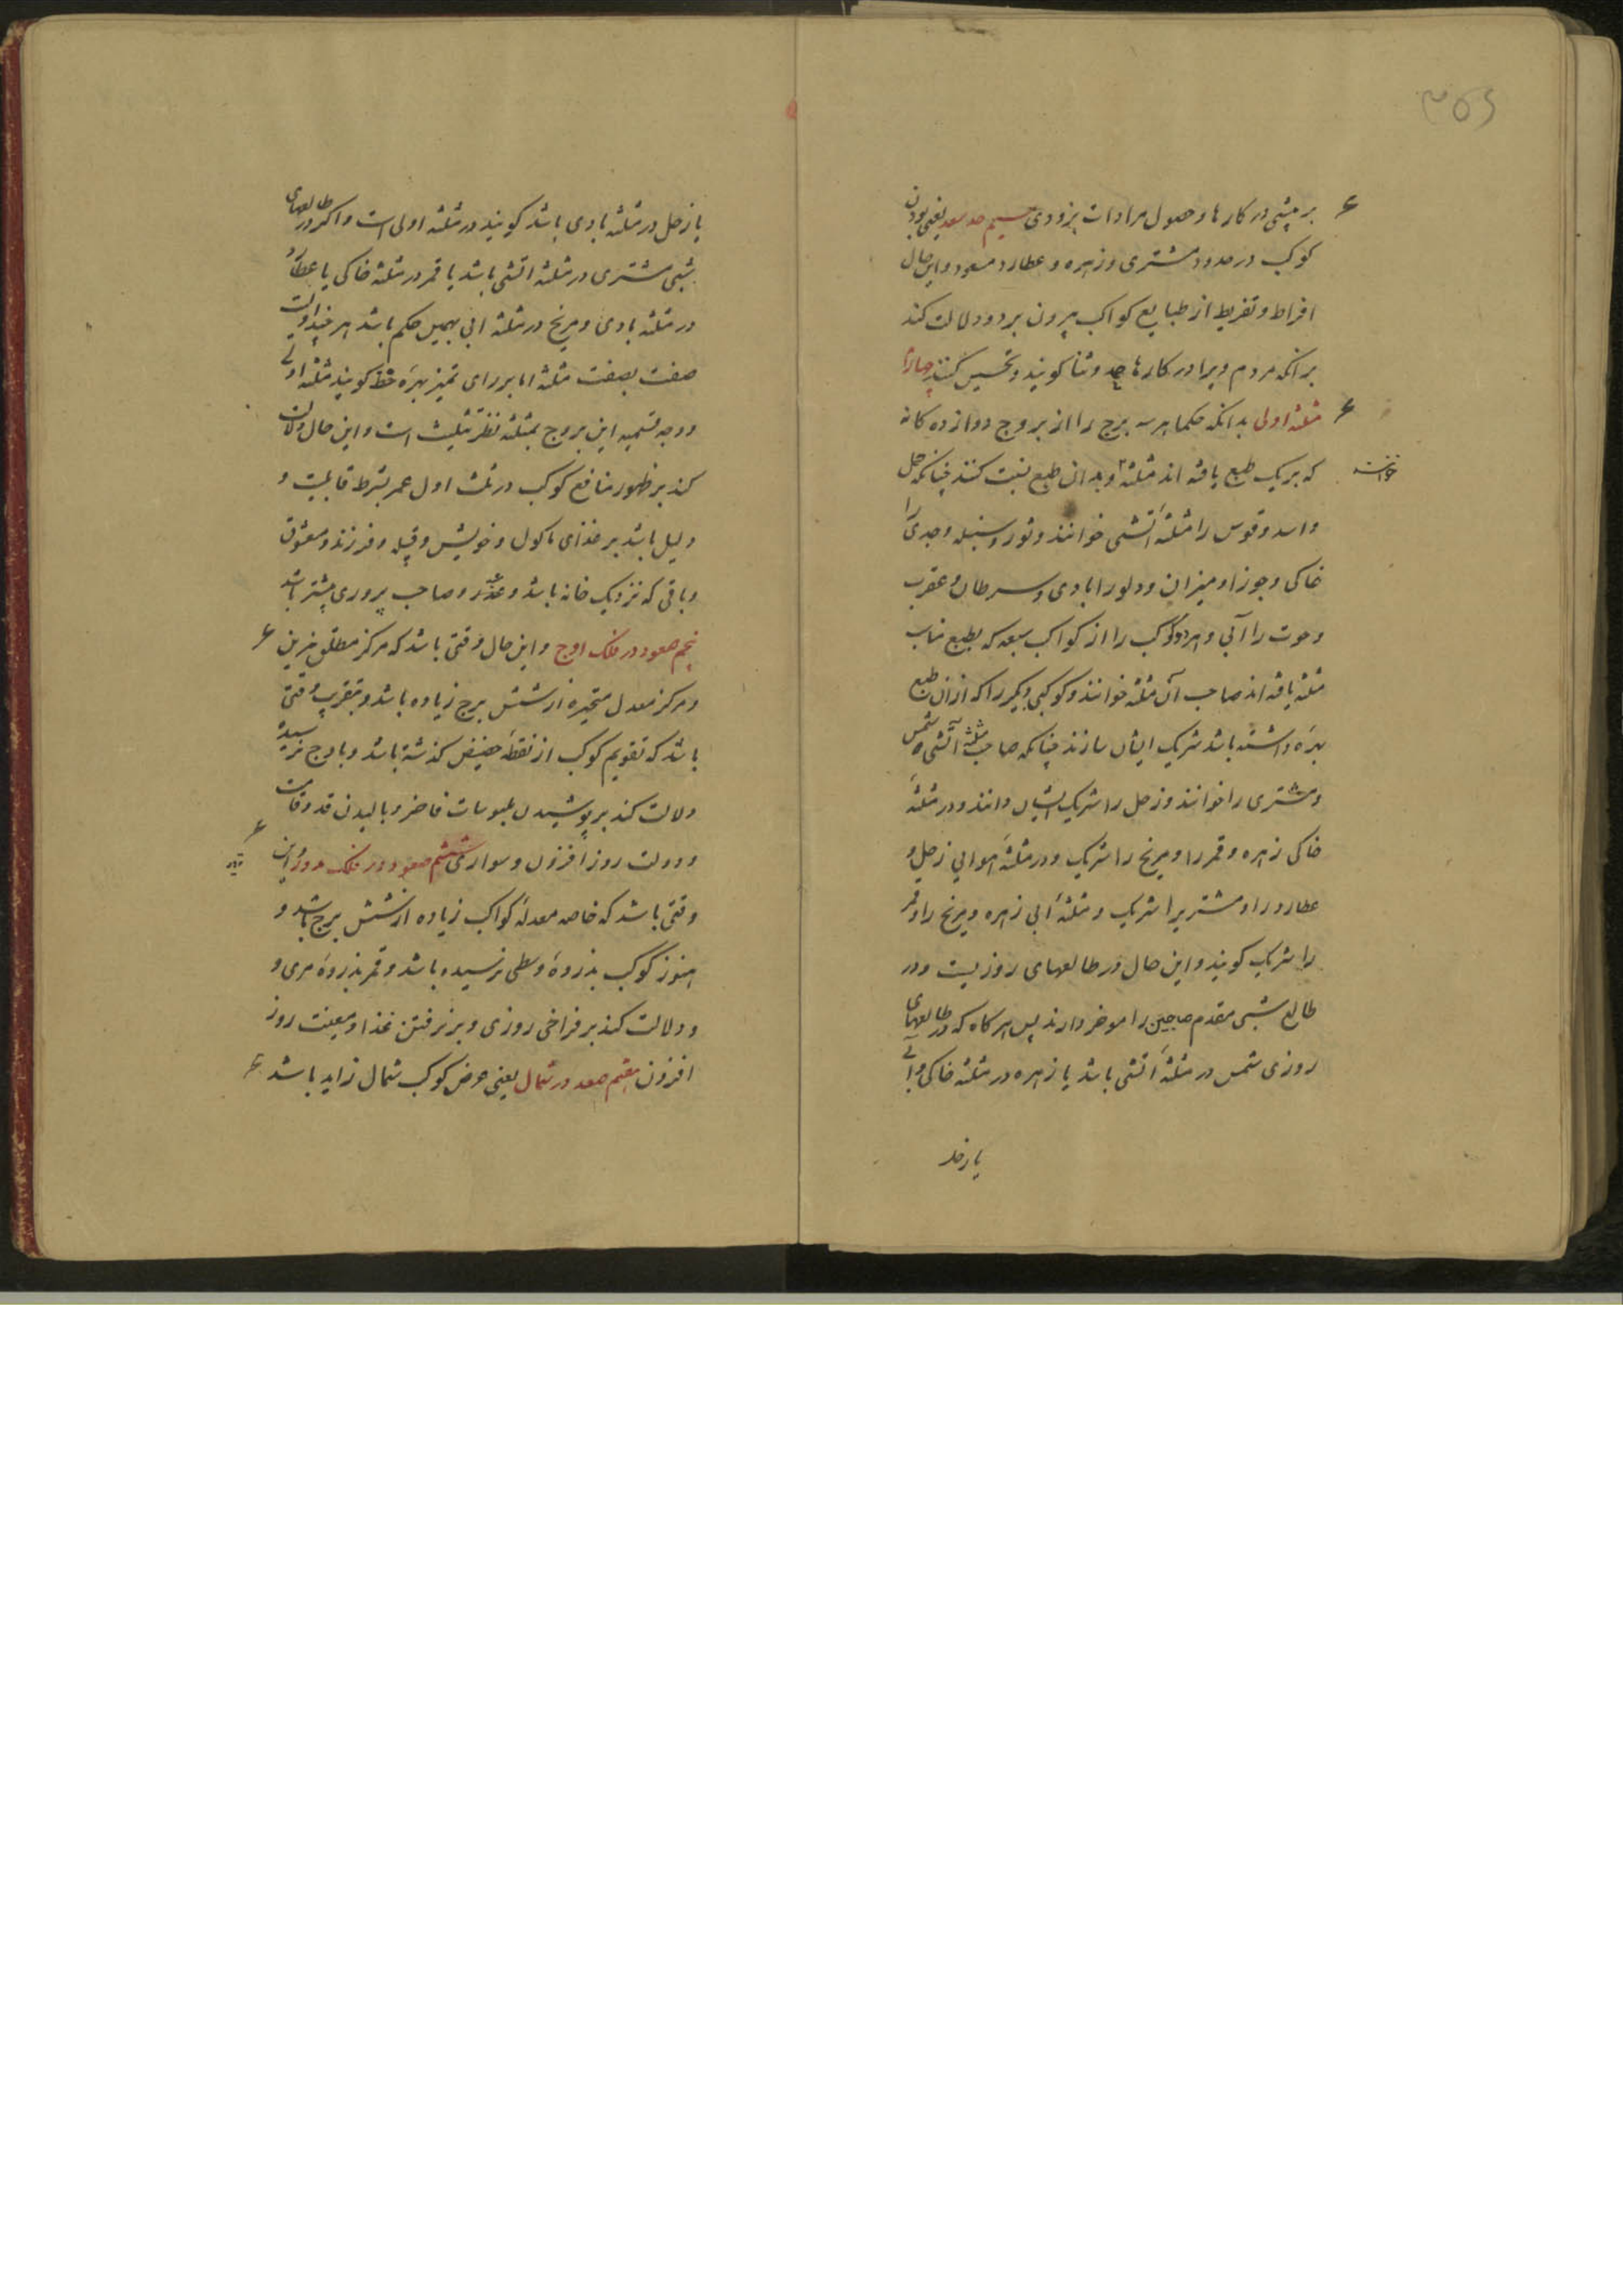 ۳۵۶
بر پیشی در کارها و حصول مرادات بزودی سیم حد سعد یعنی بودن
کوکب در حدود مشتری و زهره و عطارد مسعود و این حال
افراط و تفریط از طبایع کواکب بیرون برد و دلالت کند
بر انکه مردم ویرا در کارها حمد و ثنا کویند و تحسین کنند چهارم
مثلثه اولی بدانکه حکما هر سه برج را از بروج دوازده کانه
که بر یک طبع یافته اند مثلثه و بدان طبع نسبت کنند چنانکه حمل
و اسد و قوس را مثلثهٔ آتشی خوانند و ثور و سنبله و جدی را
خاکی و جوزا و میزان و دلو را بادی و سرطان و عقرب
و حوت را آبی و هر دو کوکب را از کواکب سبعه که بطبع مناسب
مثلثه یافته اند صاحب آن مثلثه خوانند و کوکبی دیگر را که از ان طبع
بهره داشته باشد شریک ایشان سازند چنانکه صاحب مثلثه آتشی شمس
و مشتری را خوانند و زحل را شریک ایشان دانند و در مثلثهٔ
خاکی زهره و قمر را و مریخ را شریک و در مثلثهٔ هوایی زحل و
عطارد را و مشتریرا شریک و مثلثهٔ آبی زهره و مریخ را و قمر
را شریک کویند و این حال در طالعهای روزیست و در
طالع شبی مقدم صاحبین را موخر دارند پس هر کاه که در طالعهای
روزی شمس در مثلثهٔ اتشی باشد یا زهره در مثلثه خاکی و آبی
یا زحل
یا زحل در مثلثه بادی باشد کویند در مثلثه اولی است و اکر در طالعهای
شبی مشتری در مثلثه اتشی باشد یا قمر در مثلثه خاکی یا عطارد
در مثلثه بادی و مریخ در مثلثه ابی بهمین حکم باشد هر چند اولیت
صفت بصفت مثلثه اما برای تمیز بهره حظ کویند مثلثه اولی
و وجه تسمیه این بروج بمثلثه نظر تثلیث است و این حال دلالت
کند بر ظهور منافع کوکب در ثلث اول عمر بشرط قابلیت و
دلیل باشد بر غذای ماکول و خویش و قبیله و فرزند و معشوق
و باقی که نزدیک خانه باشد و صاحب پروری بیشتر باشد
پنجم صعود در فلک اوج و این حال وقتی باشد که مرکز مطلق نیرین
و مرکز معدل متحیره از شش برج زیاده باشد و بتقریب وقتی
باشد که تقویم کوکب از نقطهٔ حضیض کذشته باشد و باوج نرسیده
دلالت کند بر پوشیدن ملبوسات فاخر و بالیدن قد و قامت
و دولت روز افزون و سواری ششم صعود در فلک تدویر و این
وقتی باشد که خاصه معدلهٔ کواکب زیاده از شش برج باشد و
هنوز کوکب بذروهٔ وسطی نرسیده باشد و قمر بذروهٔ مری و
و دلالت کند بر فراخی روزی و پذیرفتن غذا و معیشت روز
افزون هفتم صعود در شمال یعنی عرض کوکب شمال زاید باشد